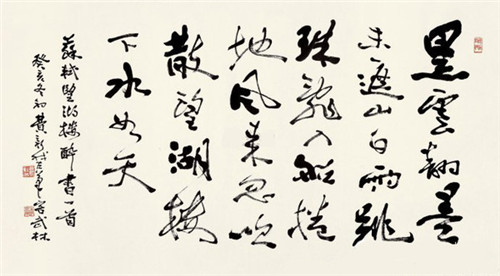 黑雲翻墨
未遮山白雨跳
珠亂入船捲
地風来忽吹
散望湖樓
下水如天
蘇軾望湖樓醉書一首
癸亥冬初費新我左筆客武林